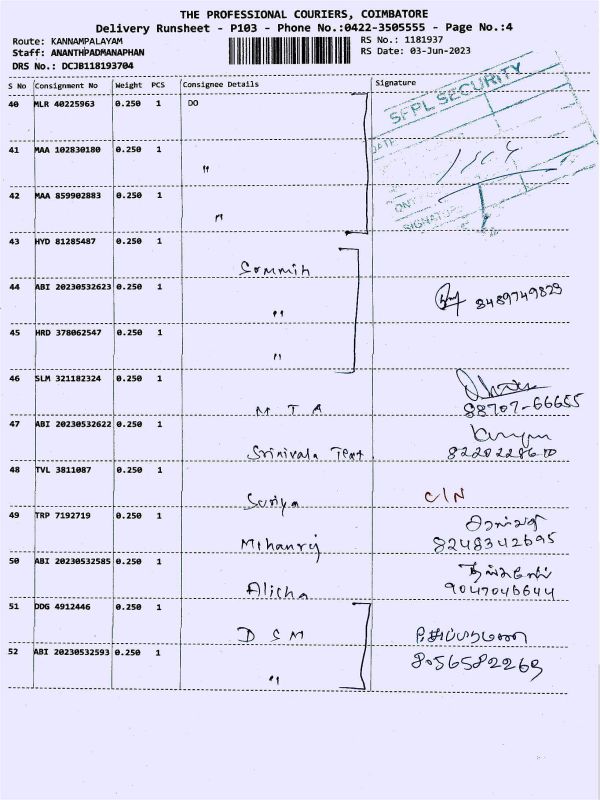 THE PROFESSIONAL COURIERS, COIMBATORE
Delivery Runsheet - P103 - Phone No.:0422-3505555 - Page No.:4
Route: KANNAMPALAYAM
RS No.: 1181937
Staff: ANANTHPADMANAPHAN
RS Date: 03-Jun-2023
DRS No.: DCJB118193704
S No Consignment No Weight PCS Consignee Details Signature
40 MLR 40225963 0.250 1 DO
SFPL SECURITY
DATE
41 MAA 102830180 0.250 1
"
42 MAA 859902883 0.250 1
"
SIGNATURE
43 HYD 81285487 0.250 1
44 ABI 20230532623 0.250 1
" 8489749829
45 HRD 378062547 0.250 1
"
46 SLM 321182324 0.250 1
M T A 88707-66655
47 ABI 20230532622 0.250 1
48 TVL 3811087 0.250 1
Suriya C/N
49 TRP 7192719 0.250 1
Mohanraj 8248342695
50 ABI 20230532585 0.250 1
Alisha 9047046644
51 DDG 4912446 0.250 1
D S M
52 ABI 20230532593 0.250 1 8056582269
"